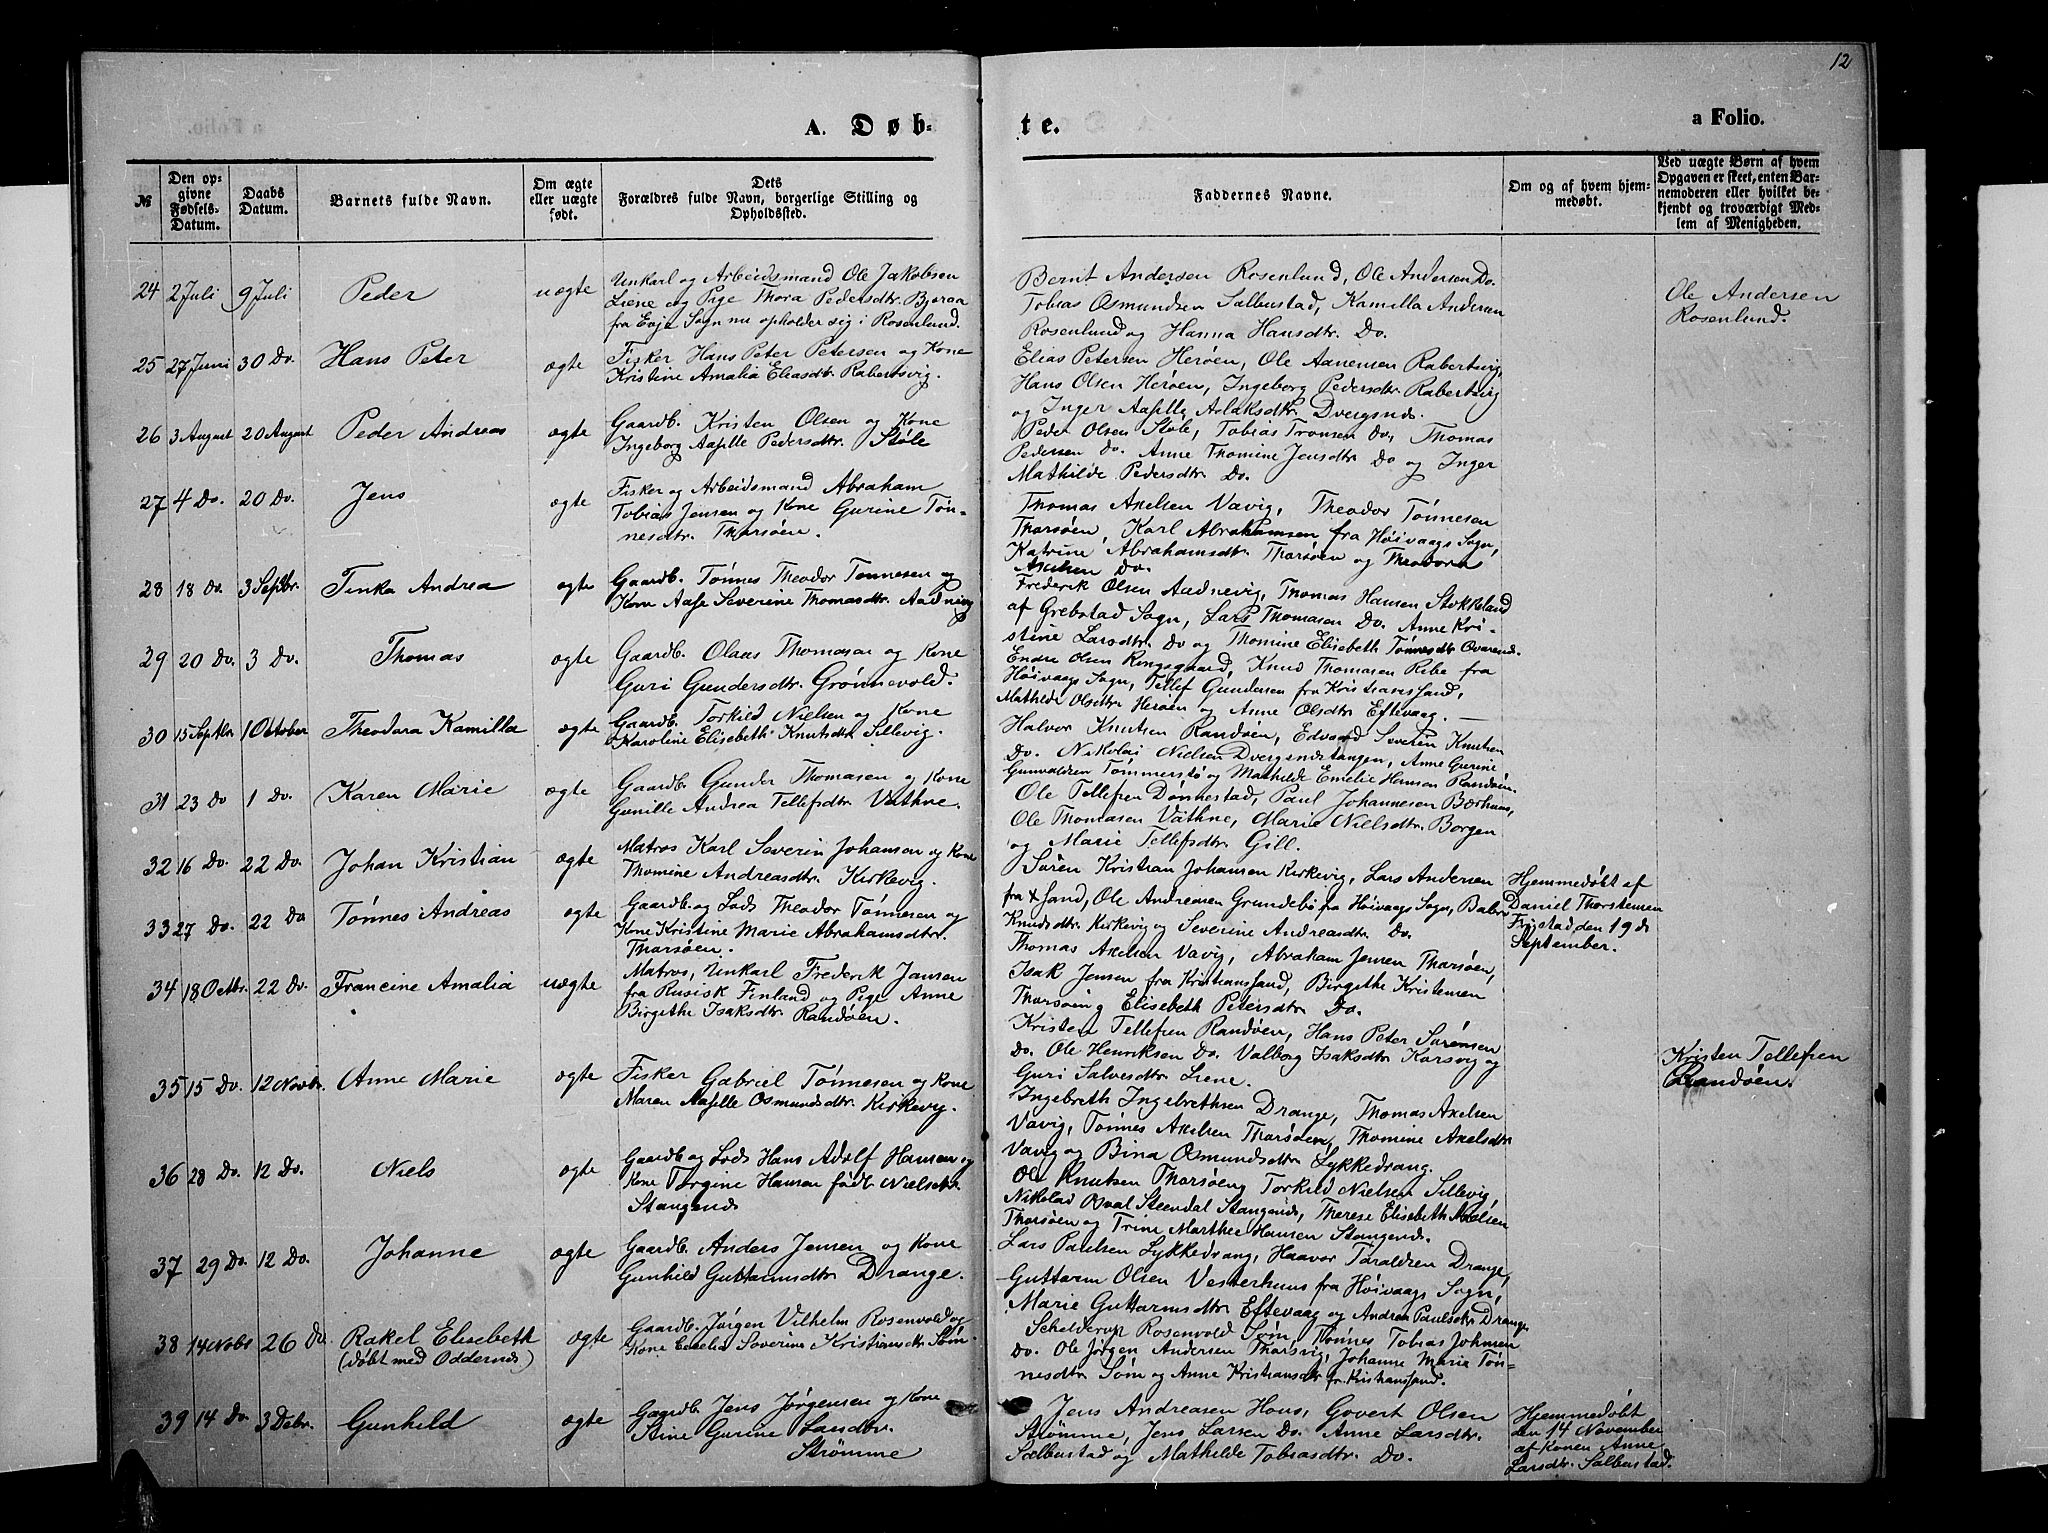 12
A. Døb-
te.
a Folio.
№
Den op-
givne
Fødsels-
Datum.
Daabs
Datum.
Barnets fulde Navn.
Om ægte
eller uægte
født.
Dets
Forældres fulde Navn, borgerlige Stilling og
Opholdssted.
Faddernes Navne.
Om og af hvem hjem-
medøbt.
Ved uægte Børn af hvem
Opgaven er skeet, enten Bar-
nemoderen eller hvilket be-
kjendt og troværdigt Med-
lem af Menigheden.
24 2 Juli 9 Juli Peder uægte
Unkarl og Arbeidsmand Ole Jakobsen
Liene og Pige Thora Pedersdtr. Bjoraa
fra Evje Sogn nu opholder sig i Rosenlund.
Bernt Andersen Rosenlund, Ole Andersen Do.
Tobias Osmundsen Sælbustad, Kamilla Andersen
Rosenlund og Hanna Hansdtr. Do.
Ole Andersen
Rosenlund.
25 27 Juni 30 Do. Hans Peter ægte
Fisker Hans Peter Petersen og Kone
Kristine Amalia Eliasdtr. Rabersvig.
Elias Petersen Herøen, Ole Aanensen Rabersvig,
Hans Olsen Herøen, Ingeborg Pedersdtr. Rabersvig
og Inger Aasille Aslaksdtr. Dvergsnes.
26 3 August 20 August Peder Andreas ægte
Gaardb. Kristen Olsen og Kone
Ingeborg Aasille Pedersdtr. Støle
Peder Olsen Støle, Tobias Tronsen Do, Thomas
Pedersen Do. Anne Thomine Jensdtr. Do og Inger
Mathilde Pedersdtr. Do.
27 4 Do. 20 Do. Jens ægte
Fisker og Arbeidsmand Abraham
Tobias Jensen og Kone Gurine Tøn-
nesdtr. Tharsøen.
Thomas Axelsen Vavig, Theodor Tønnesen
Tharsøen, Karl Abrahamsen fra Høivaags Sogn,
Katrine Abrahamsdtr. Tharsøen og Theodora
Axelsen Do.
28 18 Do. 3 Septbr. Tinka Andrea ægte
Gaardb. Tønnes Theodor Tønnesen og
Kone Aase Severine Thomasdtr. Aadnevig
Frederik Olsen Aadnevig, Thomas Hansen Stokkeland
af Grebstad Sogn, Lars Thomasen Do. Anne Kri-
stine Larsdtr. Do og Thomine Elisabeth Tønnesdtr.
29 20 Do. 3 Do. Thomas ægte
Gaardb. Olaus Thomasen og Kone
Guri Gundersdtr. Grønnevold.
Endre Olsen Kongsgaard, Knud Thomasen Ribe fra
Høivaags Sogn, Tellef Gundersen fra Kristianssand,
Mathilde Olsdtr. Herøen og Anne Olsdtr. Eftevaag.
30 15 Septbr 1 October Theodora Kamilla ægte
Gaardb. Torkild Nielsen og Kone
Karoline Elisebeth Knutsdtr. Sillevig.
Halvor Knutsen Randøen, Edvard Severin Knutsen
Do. Nikolai Nielsen Dvergsnestangen, Anne Gurine
Gunvaldsen Tømmerstø og Mathilde Emelie Hansen Randøen.
31 23 Do 1 Do. Karen Marie ægte
Gaardb. Gunder Thomasen og Kone
Gunille Andrea Tellefsdtr. Vathne.
Ole Tellefsen Dønnestad, Paul Johannesen Børhuus,
Ole Thomasen Vathne, Marie Nielsdtr. Borgen
og Marie Tellefsdtr. Gill.
32 16 Do. 22 Do. Johan Kristian ægte
Matros Karl Severin Johansen og Kone
Thomine Andreasdtr. Kirkevig.
Søren Kristian Johansen Kirkevig, Lars Andersen
fra Xsand, Ole Andreasen Grundebø fra Høivaags Sogn,
Knudsdtr. Kirkevig og Severine Andreasdtr. Do.
Hjemmedøbt af
Daniel Thorstensen
Frøstad den 19de
September.
33 27 Do. 22 Do Tønnes Andreas ægte
Gaardb. og Lods Theodor Tønnesen og
Kone Kristine Marie Abrahamsdtr.
Tharsøen.
Thomas Axelsen Vavig, Abraham Jensen Tharsøen,
Isak Jensen fra Kristianssand, Birgithe Kristensen
Tharsøen og Elisebeth Petersdtr. Do.
34 18 Octbr. 22 Do. Francine Amalia uægte
Matros, Unkarl Frederik Jansen
fra Rusisk Finland og Pige Anne
Birgithe Isaksdtr. Randøen.
Kristen Tellefsen Randøen, Hans Peter Sørensen
Do. Ole Henriksen Do. Valborg Isaksdtr. Korsvig og
Guri Salvesdtr. Liene.
Kristen Tellefsen
Randøen.
35 15 Do. 12 Novbr. Anne Marie ægte
Fisker Gabriel Tønnesen og Kone
Maren Aasille Osmundsdtr. Kirkevig.
Ingebreth Ingebrethsen Drange, Thomas Axelsen
Vavig, Tønnes Axelsen Tharsøen, Thomine Axelsdtr.
Vavig og Bina Osmundsdtr. Lykkedrang.
36 28 Do. 12 Do. Niels ægte
Gaardb og Lods Hans Adolf Hansen og
Kone Torgine Hansen født Nielsdtr.
Stangenes
Ole Knutsen Tharsøen, Torkild Nielsen Sillevig,
Nikolai Steendal Stangenes, Therese Elisebeth Nielsen
Tharsøen og Trine Marthee Hansen Stangenes.
37 29 Do. 12 Do. Johanne ægte
Gaardb. Anders Jensen og Kone
Gunhild Guttormsdtr. Drange.
Lars Paulsen Lykkedrang, Haavor Taraldsen Drange,
Guttorm Olsen Vesterhuus fra Høivaags Sogn,
Marie Guttormsdtr. Eftevaag og Andrea Paulsdtr. Drange
38 14 Novbr 26 Do. Rakel Elisebeth ægte
(døbt med Oddernes)
Gaardb. Jørgen Vilhelm Rosenvold og
Kone Emelie Severine Kristiansdtr. Søm.
Schelderup Rosenvold Søm, Tønnes Tobias Johnsen
Do. Ole Jørgen Andersen Tharsvig, Johanne Marie Tøn-
nesdtr. Søm og Anne Kristiansdtr fr. Kristianssand.
39 14 Do. 3 Debr. Gunhild ægte
Gaardb. Jens Jørgensen og Kone
Stine Gurine Larsdtr.
Strømme
Jens Andreasen Hous, Govert Olsen
Strømme, Jens Larsen Do. Anne Larsdtr.
Sælbustad og Mathilde Tobiasdtr. Do.
Hjemmedøbt
den 14 November
af Konen Anne
Larsdtr. Sælbustad.